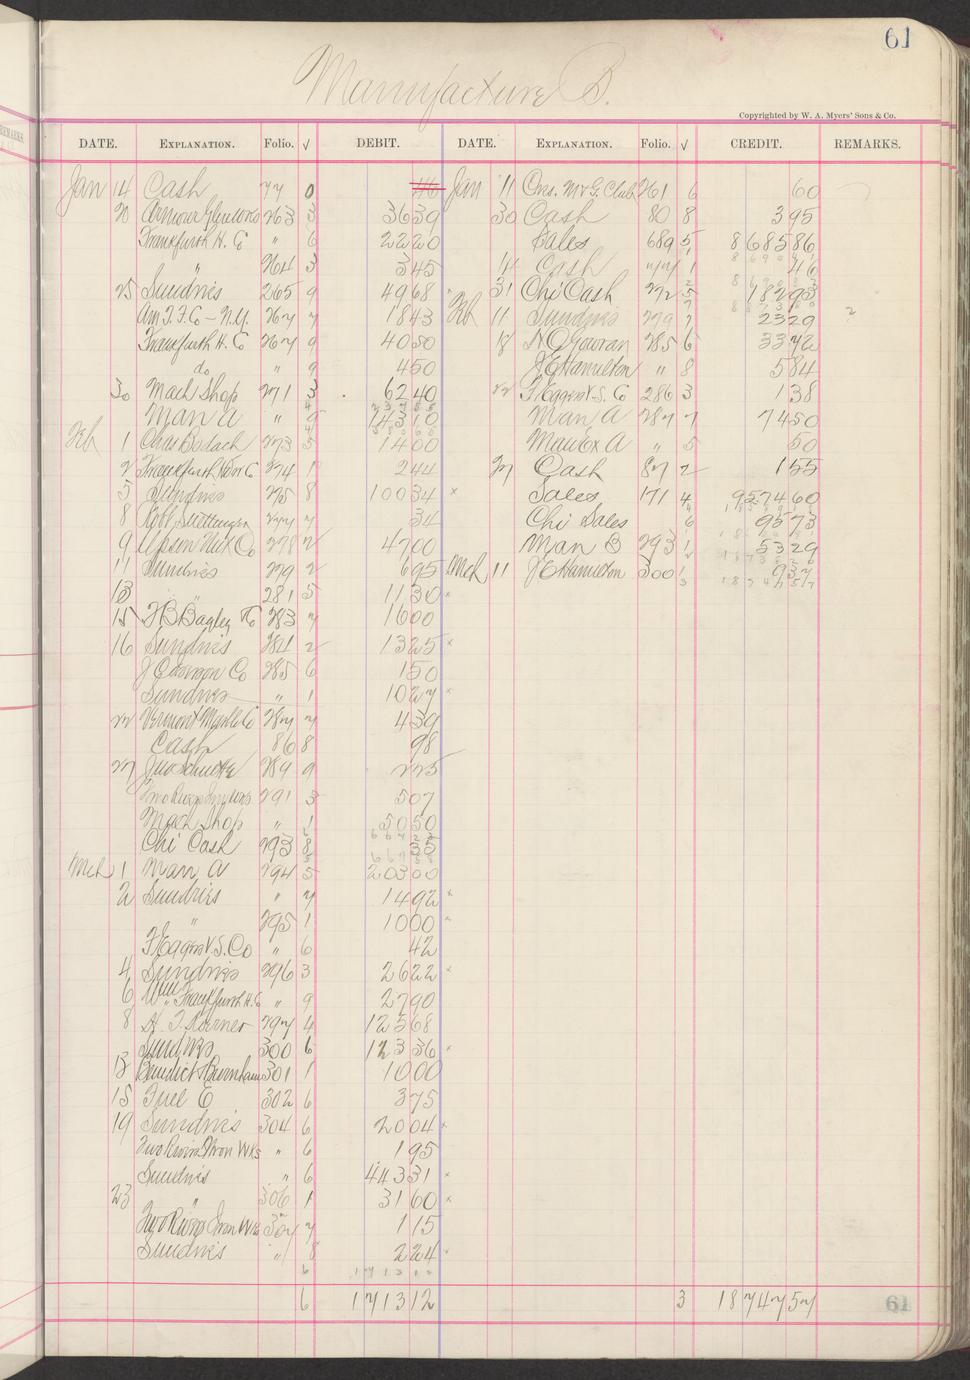 61
Manufacture B.
Copyrighted by W. A. Myers' Sons & Co.
DATE. EXPLANATION. Folio. √ DEBIT. DATE. EXPLANATION. Folio. √ CREDIT. REMARKS.
Jan 14 Cash 77 0 46 Jan 11 261 6 60
20 263 3 3639 30 Cash 80 8 395
Frankfurth H. Co " 6 2220 Sales 689 5 868586
" 264 3 345 14 Cash 77 1 46
25 Sundries 265 9 4968 31 Chi Cash 272 18293
Am. T. F. Co - N.Y. 267 7 1843 Feb 11 Sundries 279 7 2329
Frankfurth H. Co 267 9 4050 18 285 6 3372
do " 9 450 J E Hamilton " 8 584
30 Mach Shop 271 3 6240 22 F Eggers V. S. Co 286 3 138
Man A " 9 14310 Man A 287 7 7450
Feb 1 273 5 1400 " 5 50
2 274 1 244 27 Cash 87 2 155
5 Sundries 275 8 10034 × Sales 171 4 957460
8 277 7 34 Chi Sales 6 9573
9 Upson Nut Co 278 2 4700 Man B 293 1 5329
11 Sundries 279 2 695 × Mch 11 J E Hamilton 300 1 937
13 " 281 5 1130 ×
15 F B Bagley 283 7 1600
16 Sundries 284 2 1325 ×
285 6 150
Sundries " 1 1027 ×
22 Vermont Marble Co 287 7 439
Cash 86 8 98
27 289 9 225
291 3 507
Mach Shop " 1 5050
Chi Cash 293 8 35
Mch 1 Man A 294 5 20300
2 Sundries " 7 1492 ×
" 295 1 1000 ×
F Eggers V. S. Co " 6 42
4 Sundries 296 3 2622 ×
6 Wm Frankfurth H. Co " 9 2790
8 297 4 12568
Sundries 300 6 12336 ×
13 Benedict & Burnham 301 1 1000
15 Fuel E 302 6 375
19 Sundries 304 6 2004 ×
Two Rivers Iron Wks " 6 195
Sundries " 6 44331 ×
23 " 306 1 3160 ×
Two Rivers Iron Wks 307 7 115
Sundries " 8 224 ×
6 171312 3 1874757 61